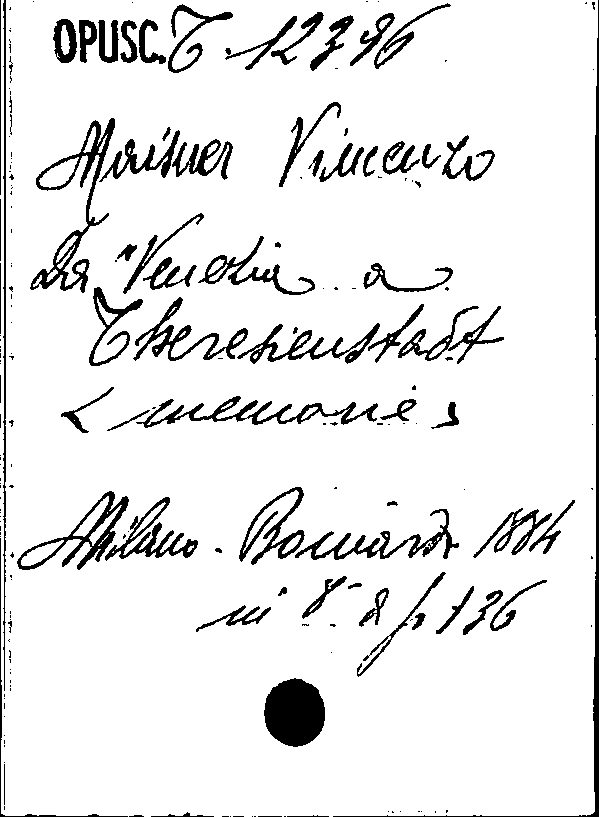 OPUSC. T. 12396
Maisner Vincenzo
Da Venezia a
Theresienstadt
< memorie >
Milano - Bomiardi 1884
in 8° di p. 136